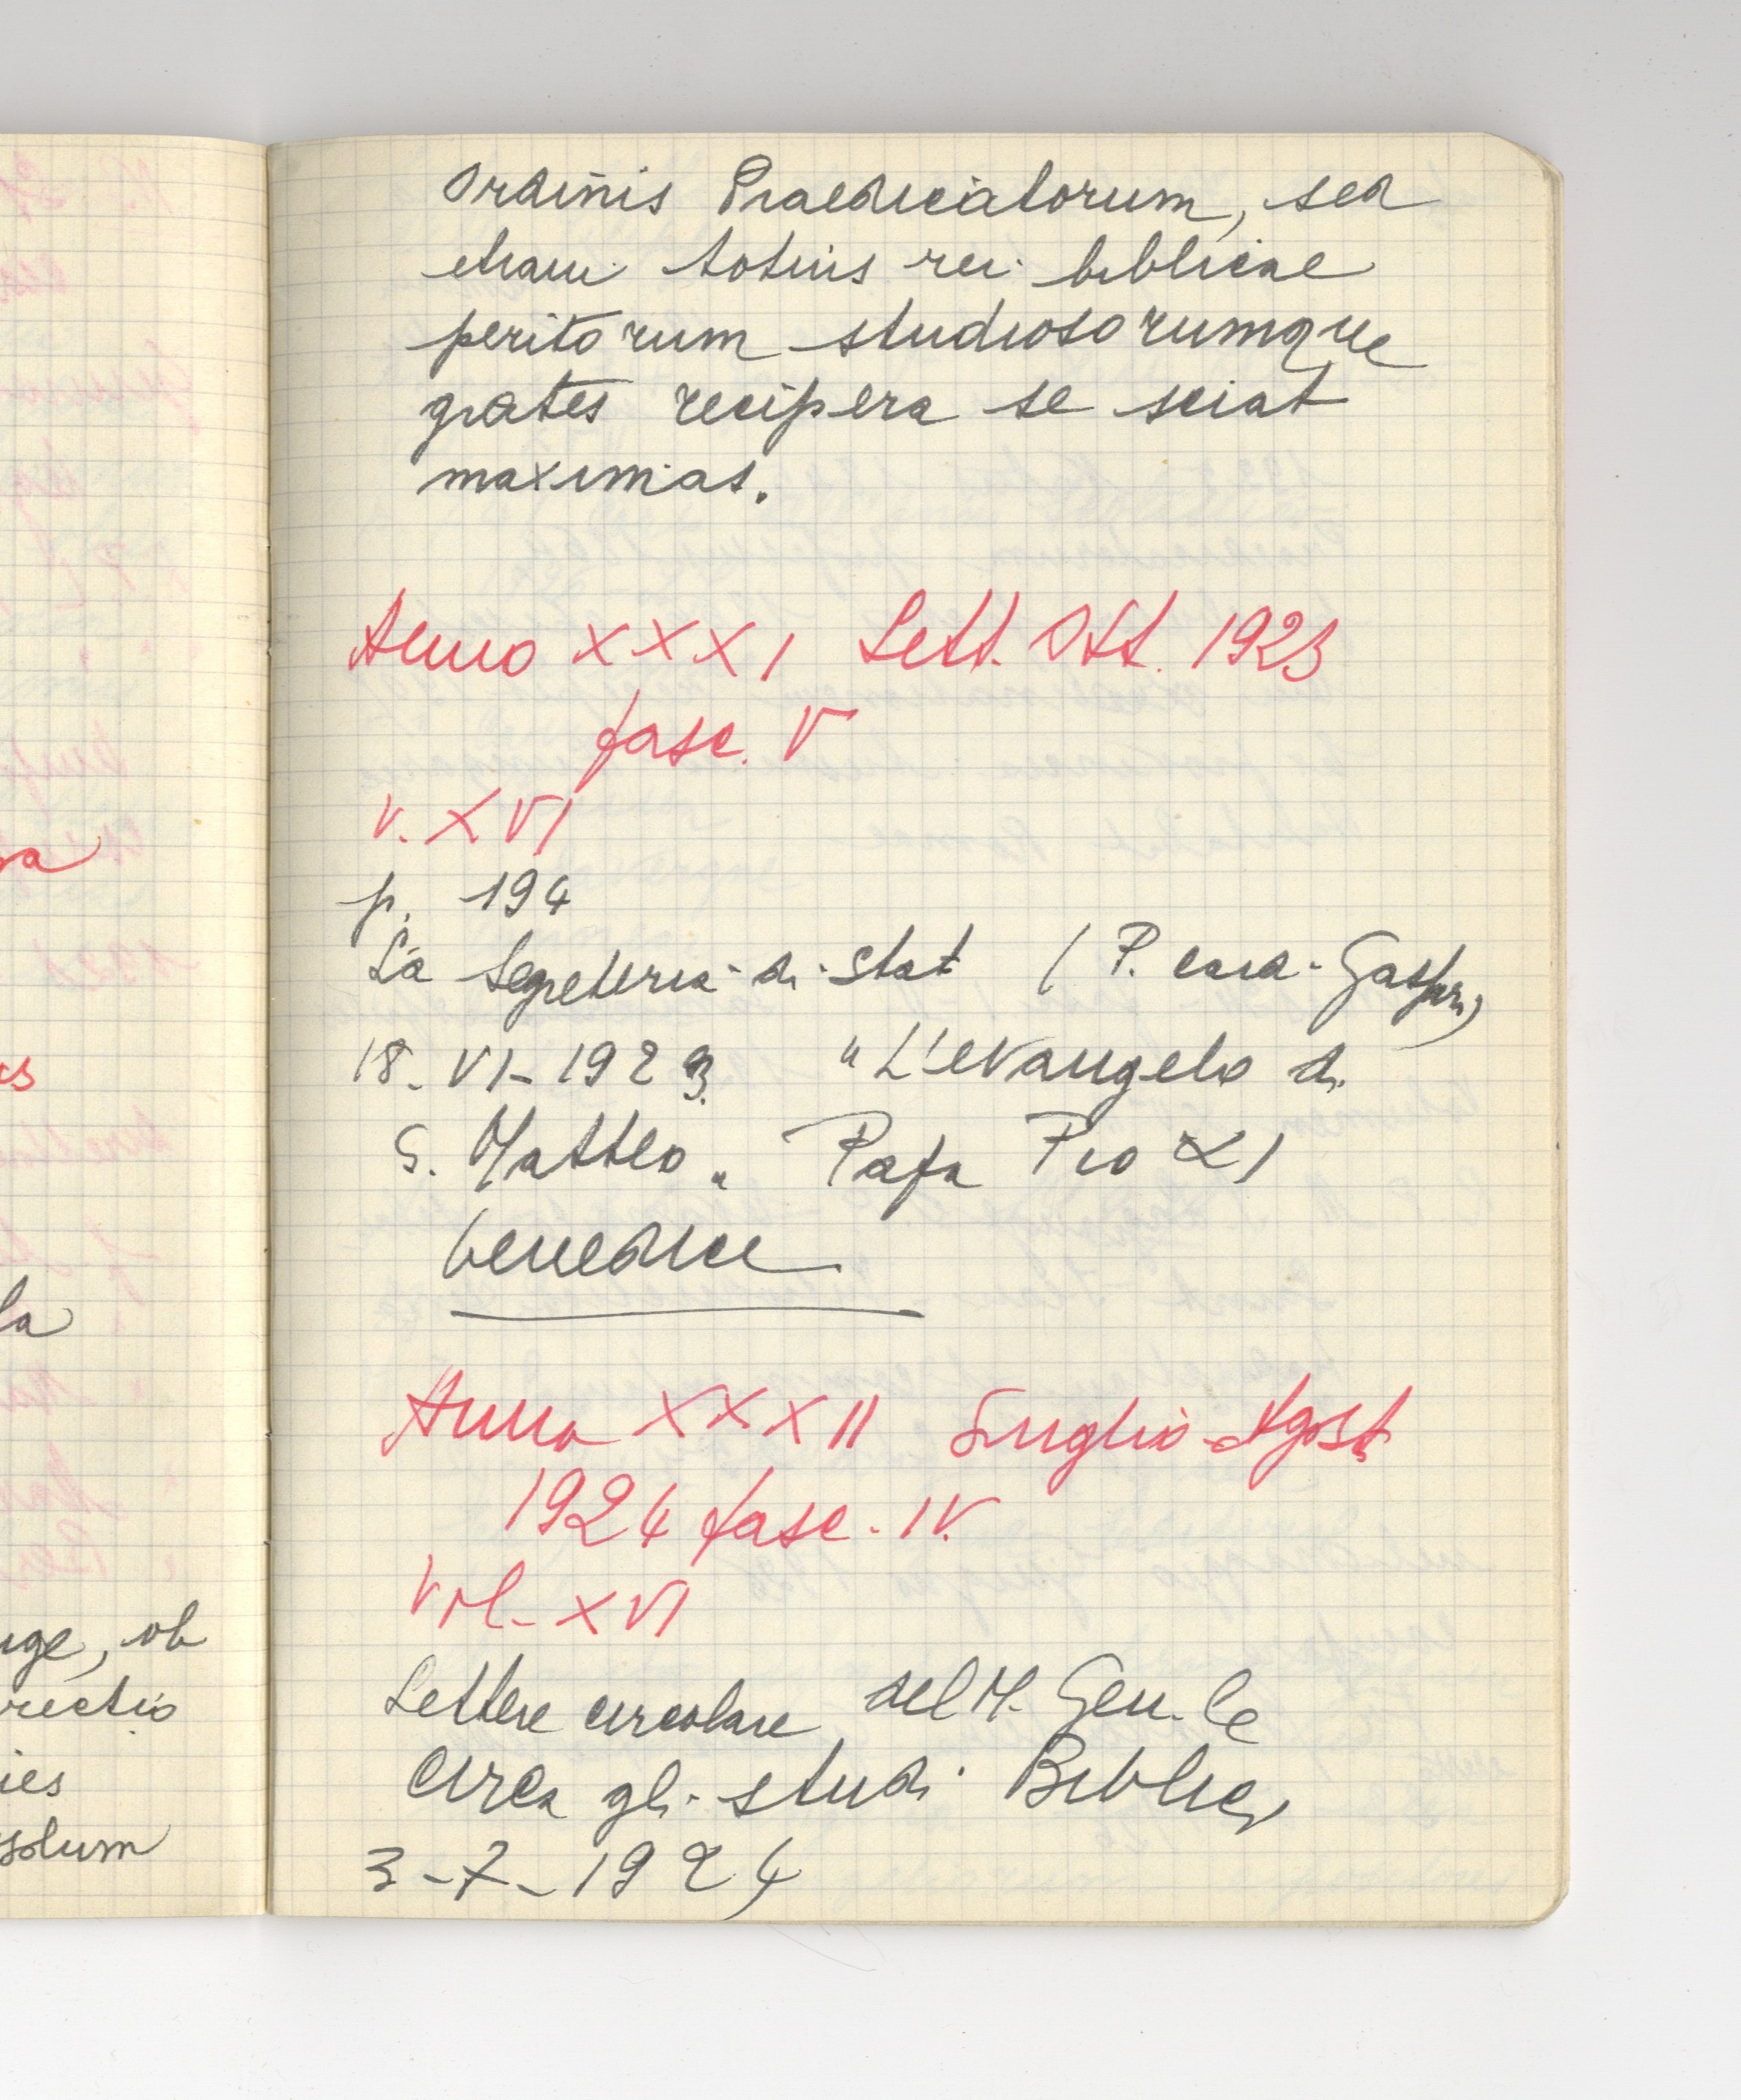 a
es
la
uge, ob
rectio
ies
solum
Ordinis Praedicatorum, sed
etiam totius rei biblicae
peritorum studiosorumque
grates recipera se sciat
maximas.
Anno XXXI Sett. Ott. 1923
fasc. V
V. XVI
p. 194
La Segreteria di Stat (P. card. Gasparri)
18-VI-1923. "L'evangelo di
S. Matteo" Papa Pio XI
benedice
Anno XXXII Luglio-Agost
1924 fasc. IV.
Vol. XVI
Lettere circolare del M. Gen.le
circa gli studi Biblici
3-7-1924